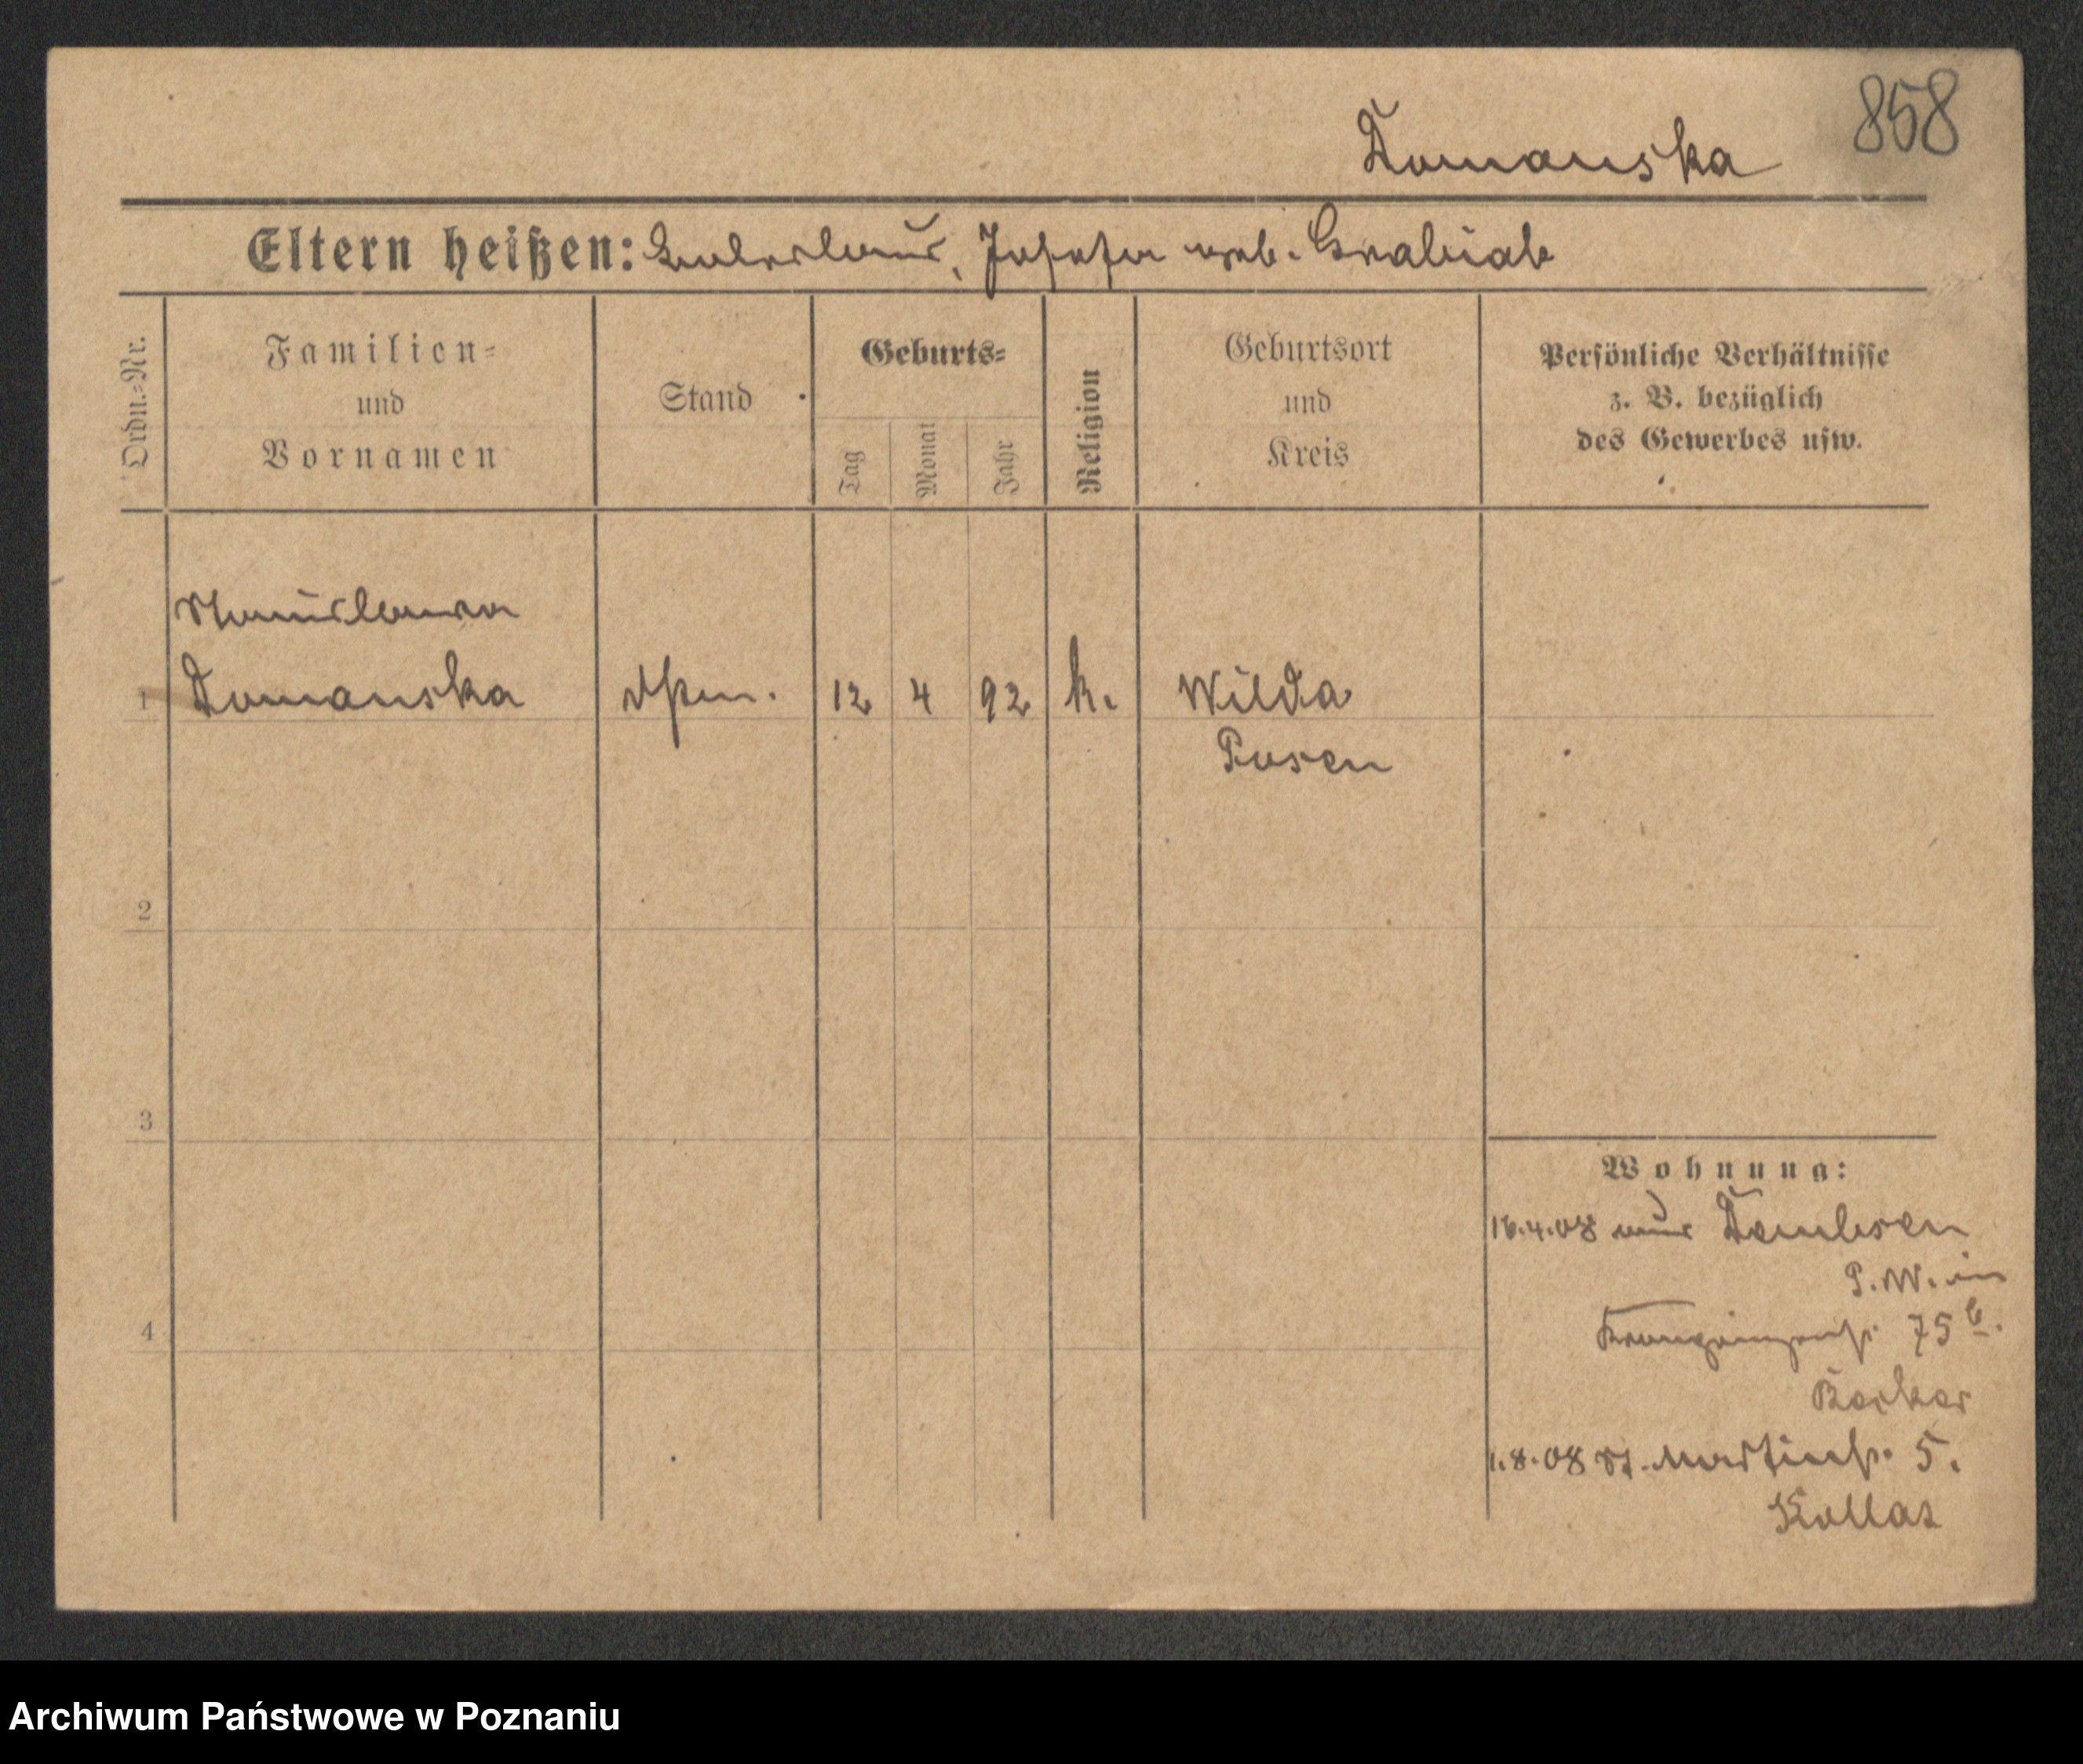 858
Domanska
Eltern heißen: Ladislaus, Josefa geb. Grabiak
Ordn.=Nr.
Familien=
und
Vornamen
Stand
Geburts=
Tag
Monat
Jahr
Religion
Geburtsort
und
Kreis
Persönliche Verhältnisse
z. B. bezüglich
des Gewerbes usw.
Stanislawa
1 Domanska 12 4 92 k. Wilda
Posen
2
3
4
Wohnung:
16.4.08 aus Dembsen
P.W. in
Kronprinzenstr. 75b.
1.8.08 St. Martinstr. 5.
Kollat